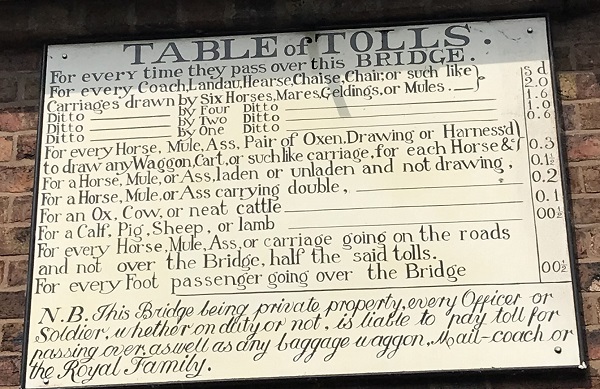 TABLE of TOLLS.
For every time they pass over this BRIDGE.
For every Coach, Landau, Hearse, Chaise, Chair, or such like } s d
Carriages drawn by Six Horses, Mares, Geldings, or Mules. 2.0
Ditto by Four Ditto 1.6
Ditto by Two Ditto 1.0
Ditto by One Ditto 0.6
For every Horse, Mule, Ass, Pair of Oxen, Drawing or Harness'd)
to draw any Waggon, Cart, or such like carriage, for each Horse &c 0.3
For a Horse, Mule, or Ass, laden or unladen and not drawing, 0.1½
For a Horse, Mule, or Ass carrying double, 0.2
For an Ox, Cow, or neat cattle 0.1
For a Calf, Pig, Sheep, or lamb 00½
For every Horse, Mule, Ass, or carriage going on the roads
and not over the Bridge, half the said tolls.
For every Foot passenger going over the Bridge 00½
N.B. This Bridge being private property, every Officer or
Soldier, whether on duty or not, is liable to pay toll for
passing over, as well as any baggage waggon, Mail-coach or
the Royal Family.